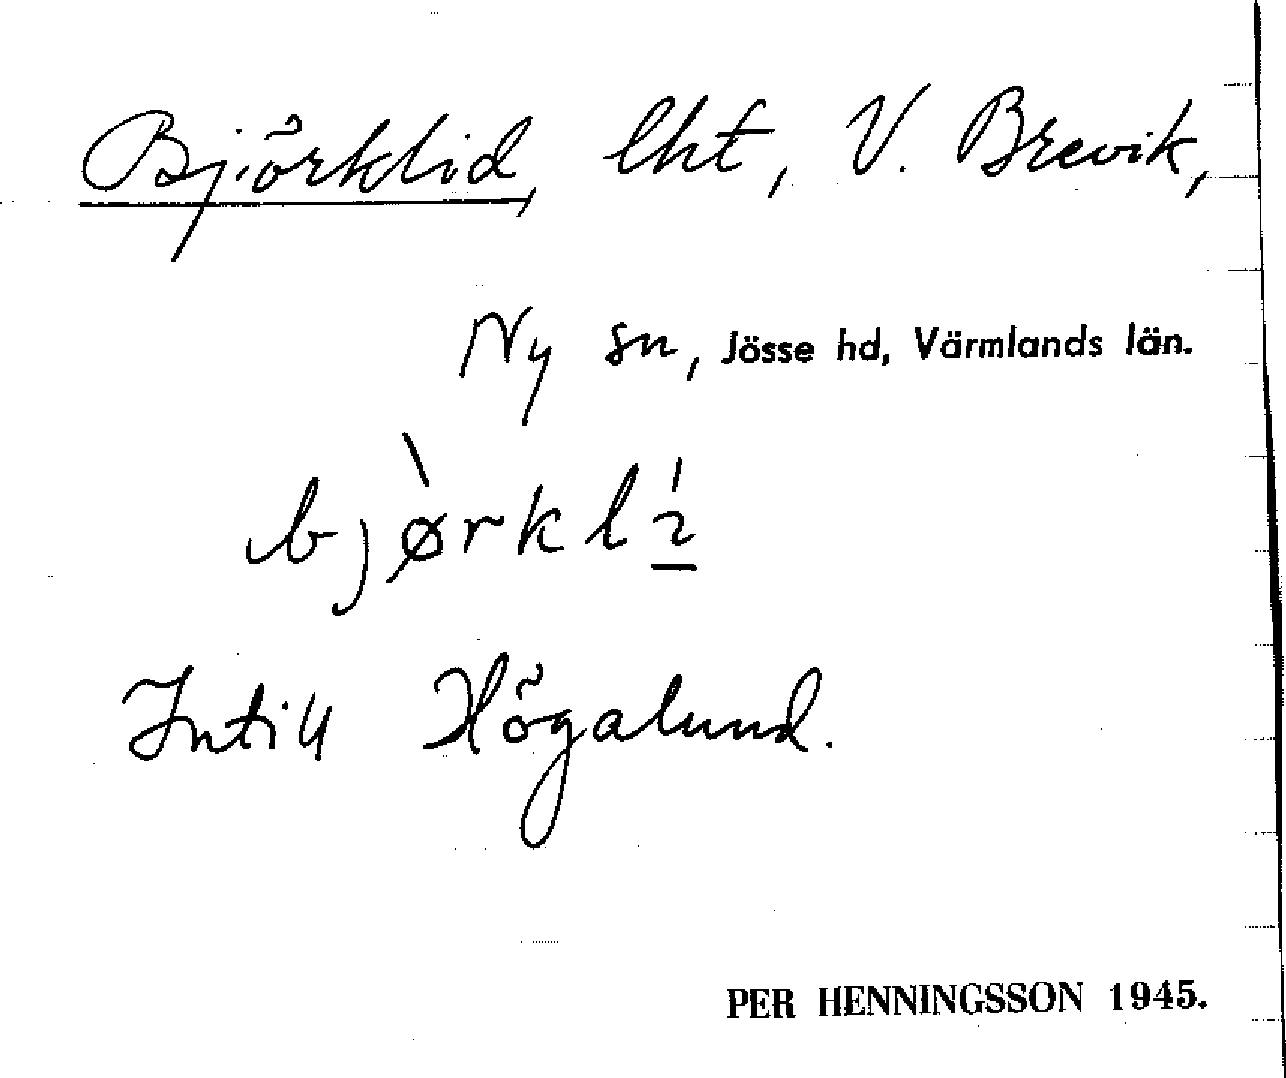 Björklid, lht, V. Brevik,
Ny sn, Jösse hd, Värmlands län.
bjø̀rklí̱
Intill Högalund.
PER HENNINGSSON 1945.